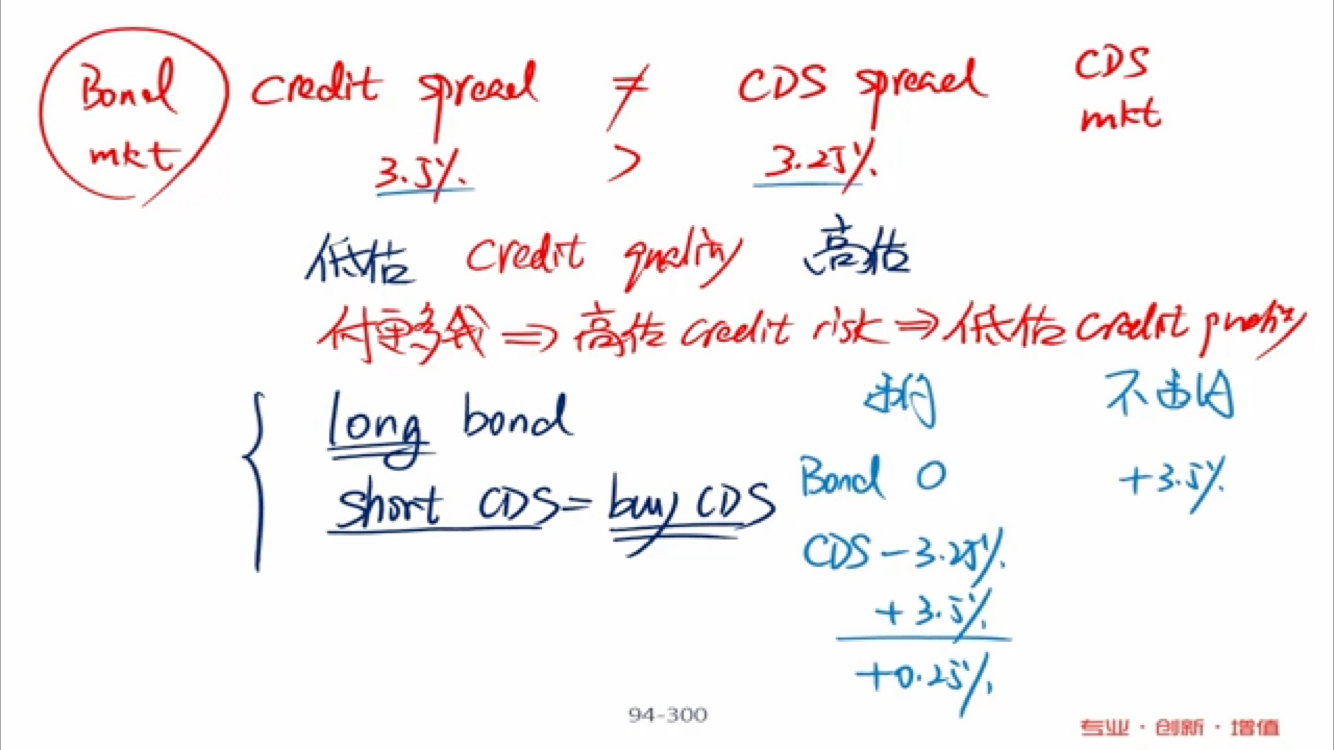 Bond mkt credit spread ≠ CDS spread CDS mkt
3.5% > 3.25%
低估 credit quality 高估
付更多钱 ⇒ 高估 credit risk ⇒ 低估 credit quality
long bond
short CDS = buy CDS
违约 不违约
Bond 0 +3.5%
CDS -3.25%
+3.5%
+0.25%
94-300
专业·创新·增值